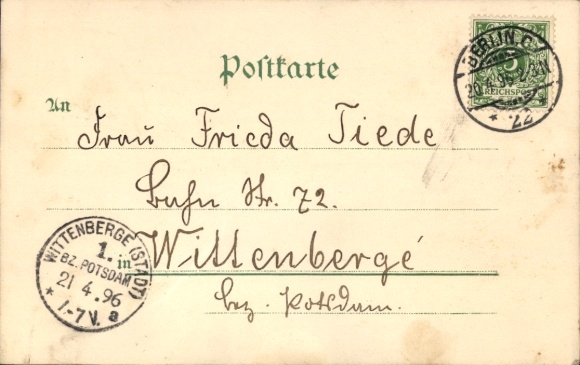 Postkarte
BERLIN C.
5
REICHSPOST
* 22
An
Frau Frieda Tiede
Bahn Str. 72.
in Wittenberge
bez. Potsdam.
WITTENBERGE (STADT)
1.
BZ. POTSDAM
21 4. 96
* 1-7V. a